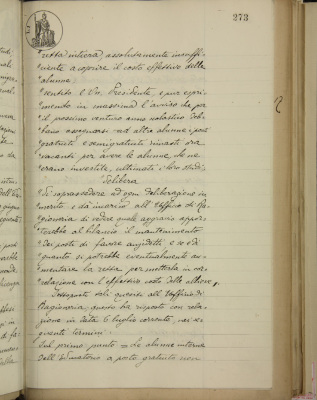 273
"retta intiera, assolutamente insuffi-
"ciente a coprire il costo effettivo delle
"alunne;
"Sentito il Sig. Presidente, e pur espri-
"mendo in massima l'avviso che per
"il prossimo venturo anno scolastico deb-
"bano assegnarsi ad altre alunne i posti
"gratuiti e semigratuiti rimasti ora
"vacanti per avere le alunne, che ne
"erano investite, ultimati i loro studi;
"Delibera
"di soprassedere ad ogni deliberazione in
"merito, e dà incarico all'Ufficio di Ra-
"gioneria di vedere quale aggravio appor-
"terebbe al bilancio il mantenimento
"dei posti di favore anzidetti e se e di
"quanto si potrebbe eventualmente au-
"mentare la retta per metterla in cor-
"relazione con l'effettivo costo delle allieve".
Sottoposti tali quesiti all'Ufficio di
Ragioneria, questo ha risposto con rela-
zione in data 6 luglio corrente, nei se-
guenti termini:
Sul primo punto = Le alunne interne
dell'Educatorio a posto gratuito non